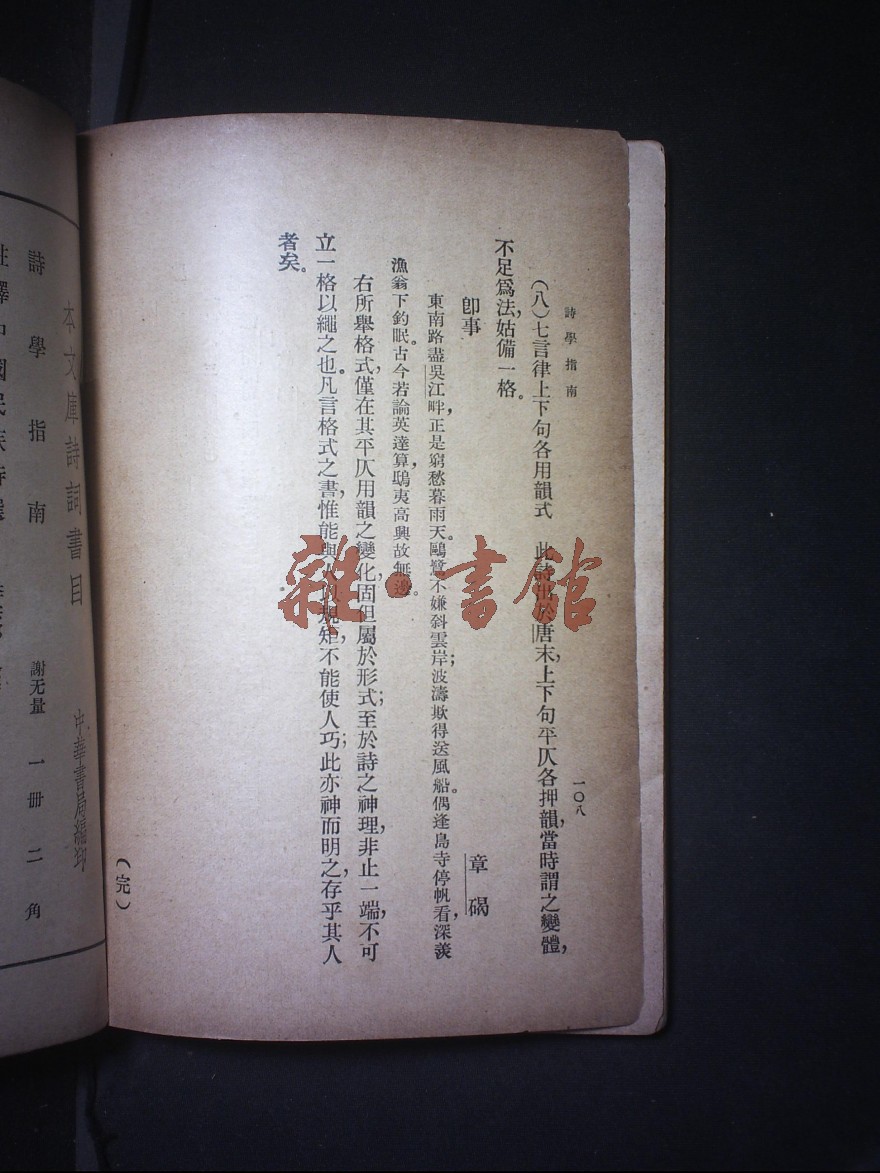 詩學指南
一〇八
(八)七言律上下句各用韻式　此詩出於唐末,上下句平仄各押韻,當時謂之變體,
不足爲法,姑備一格。
卽事　章碣
東南路盡吳江畔,正是窮愁暮雨天。鷗鷺不嫌斜雲岸;波濤欺得送風船。偶逢島寺停帆看,深羨
漁翁下釣眠。古今若論英達算,鴟夷高興故無邊。
右所舉格式,僅在其平仄用韻之變化,固但屬於形式;至於詩之神理,非止一端,不可
立一格以繩之也。凡言格式之書,惟能與人以規矩,不能使人巧;此亦神而明之,存乎其人
者矣。
(完)
本文庫詩詞書目　中華書局編印
詩學指南　謝无量　一册　二角
註釋中國民族詩選
雜·書館